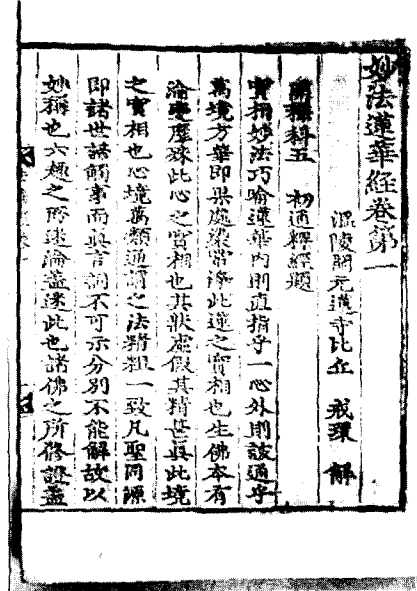 妙法蓮華經卷第一
溫陵開元蓮寺比丘 戒環 解
開釋科五 初通釋經題
實相妙法巧喻蓮華內則直指乎一心外則該通乎
萬境方華即果處染常淨此蓮之實相也生佛本有
淪變歷殊此心之實相也其狀虛假其精甚眞此境
之實相也心境萬類通謂之法精粗一致凡聖同源
即諸世諦觸事而眞言詞不可示分別不能解故以
妙稱也六趣之所迷淪盖迷此也諸佛之所修證盖